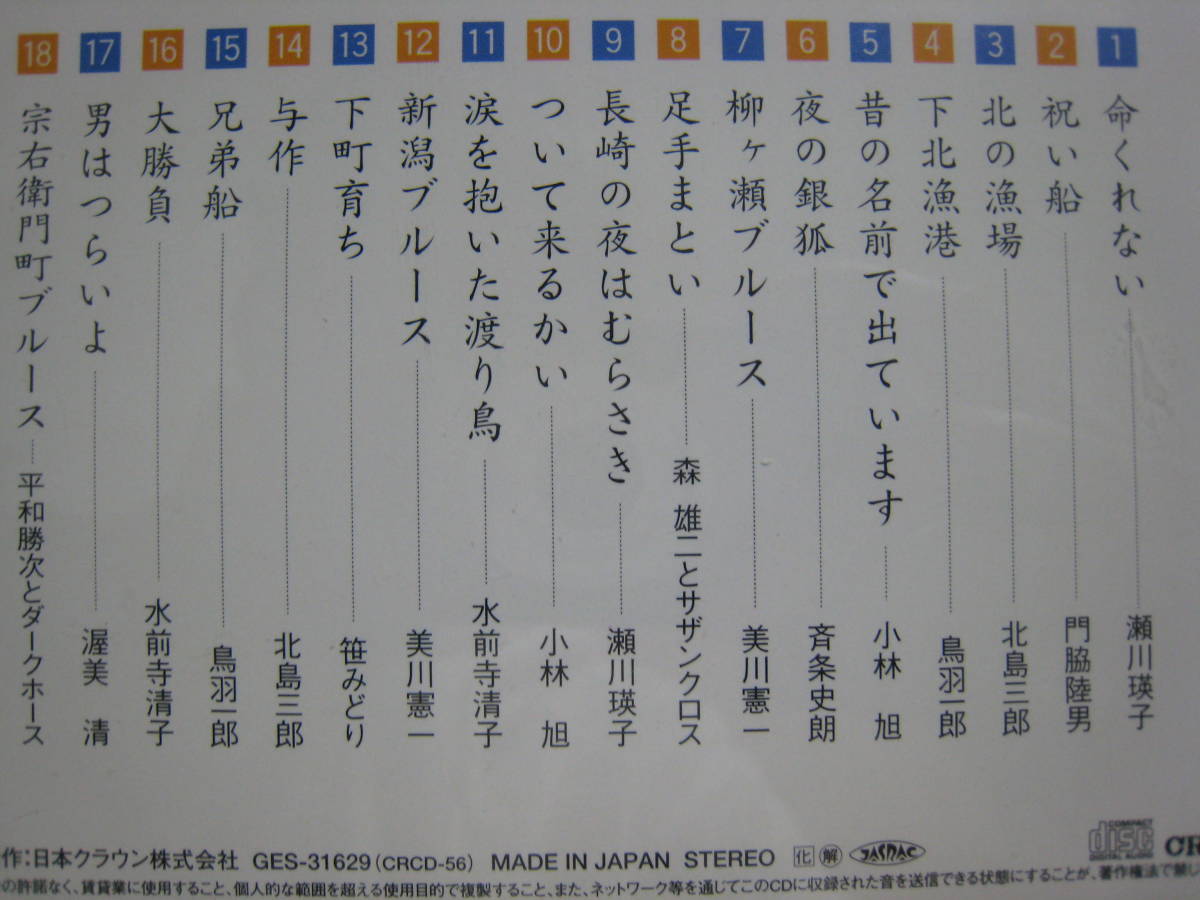 1 命くれない 瀬川瑛子
2 祝い船 門脇陸男
3 北の漁場 北島三郎
4 下北漁港 鳥羽一郎
5 昔の名前で出ています 小林 旭
6 夜の銀狐 斉条史朗
7 柳ヶ瀬ブルース 美川憲一
8 足手まとい 森 雄二とサザンクロス
9 長崎の夜はむらさき 瀬川瑛子
10 ついて来るかい 小林 旭
11 涙を抱いた渡り鳥 水前寺清子
12 新潟ブルース 美川憲一
13 下町育ち 笹みどり
14 与作 北島三郎
15 兄弟船 鳥羽一郎
16 大勝負 水前寺清子
17 男はつらいよ 渥美 清
18 宗右衛門町ブルース 平和勝次とダークホース
作:日本クラウン株式会社 GES-31629(CRCD-56) MADE IN JAPAN STEREO 化 解 JASRAC COMPACT disc DIGITAL AUDIO CR
の許諾なく、賃貸業に使用すること、個人的な範囲を超える使用目的で複製すること、また、ネットワーク等を通じてこのCDに収録された音を送信できる状態にすることが、著作権法で禁じ